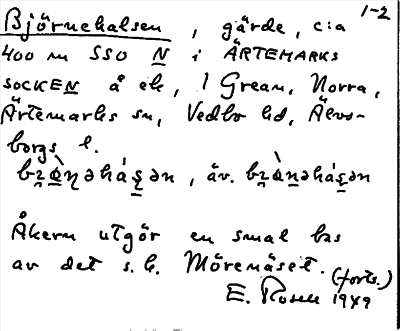 1-2
Björnehalsen, gärde, c:a
400 m SSO N i ÄRTEMARKS
SOCKEN å ek, 1 Grean, Norra,
Ärtemarks sn, Vedbo hd, Älvs-
borgs l.
Åkern utgör en smal bas
av det s.k. Mörenäset. (forts.)
E. Rosell 1949